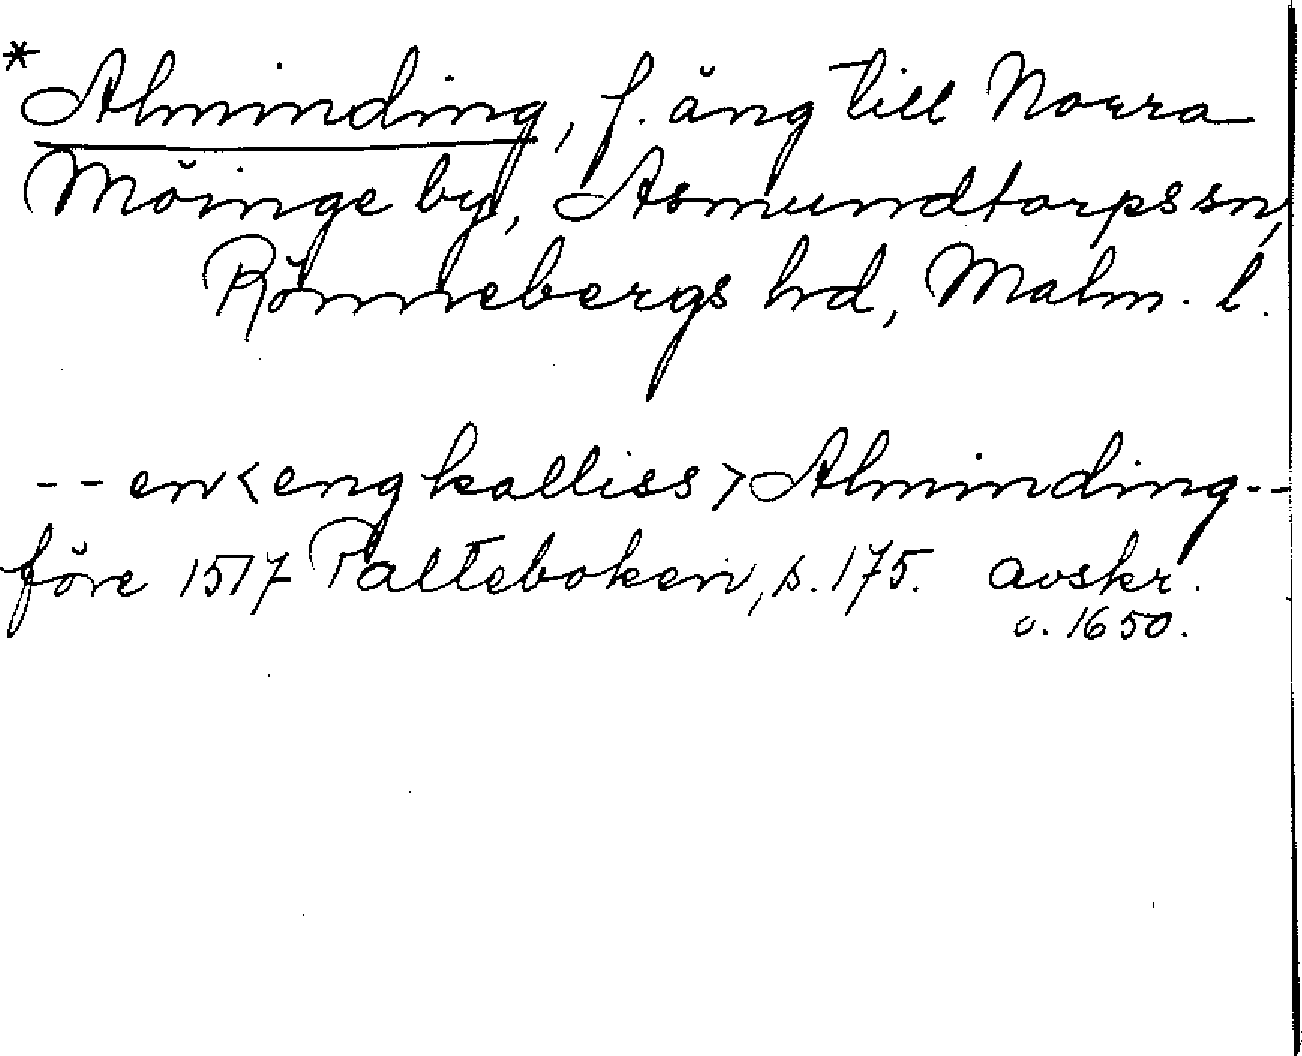 *Alminding, f. äng till Norra
Möinge by, Asmundtorps sn,
Rönnebergs hd, Malm. l.
-- en <eng kalliss> Alminding --
före 1517 Palteboken, s. 175. avskr.
o. 1650.